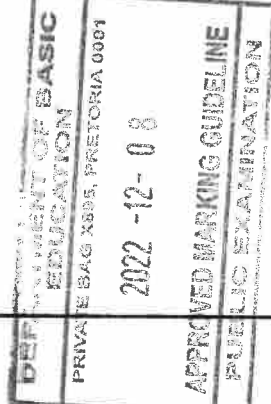 DEPARTMENT OF BASIC
EDUCATION
PRIVATE BAG X895, PRETORIA 0001
2022 -12- 08
APPROVED MARKING GUIDELINE
PUBLIC EXAMINATION